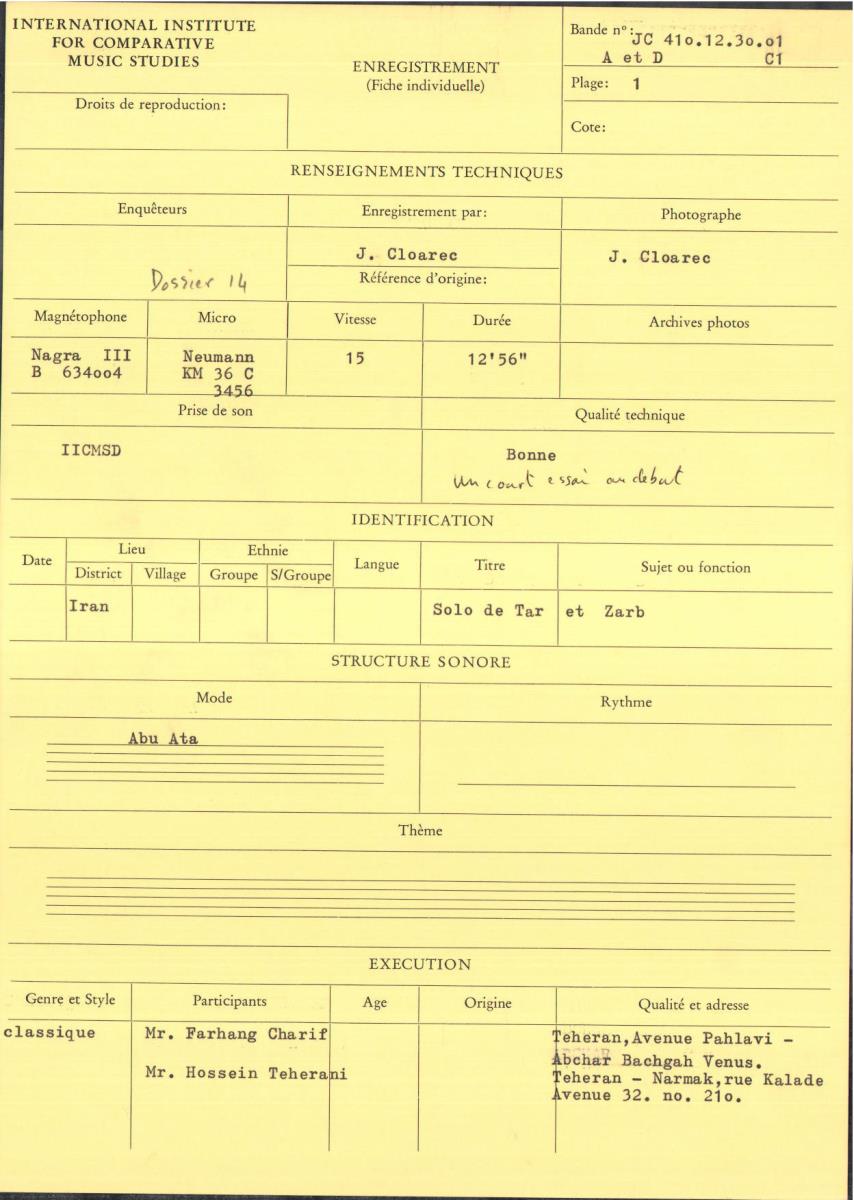 INTERNATIONAL INSTITUTE
FOR COMPARATIVE
MUSIC STUDIES
Droits de reproduction:
ENREGISTREMENT
(Fiche individuelle)
Bande nº: JC 41o.12.3o.o1
A et D C1
Plage: 1
Cote:
RENSEIGNEMENTS TECHNIQUES
Enquêteurs
Enregistrement par:
Photographe
Dossier 14
J. Cloarec
Référence d'origine:
J. Cloarec
Magnétophone
Micro
Vitesse
Durée
Archives photos
Nagra III
B 634oo4
Neumann
KM 36 C
3456
15
12'56"
Prise de son
Qualité technique
IICMSD
Bonne
un court essai au debut
IDENTIFICATION
Date
Lieu
District
Village
Ethnie
Groupe
S/Groupe
Langue
Titre
Sujet ou fonction
Iran
Solo de Tar et Zarb
STRUCTURE SONORE
Mode
Rythme
Abu Ata
Thème
EXECUTION
Genre et Style
Participants
Age
Origine
Qualité et adresse
classique
Mr. Farhang Charif
Mr. Hossein Teherani
Teheran,Avenue Pahlavi -
Abchar Bachgah Venus.
Teheran - Narmak,rue Kalade
Avenue 32. no. 21o.